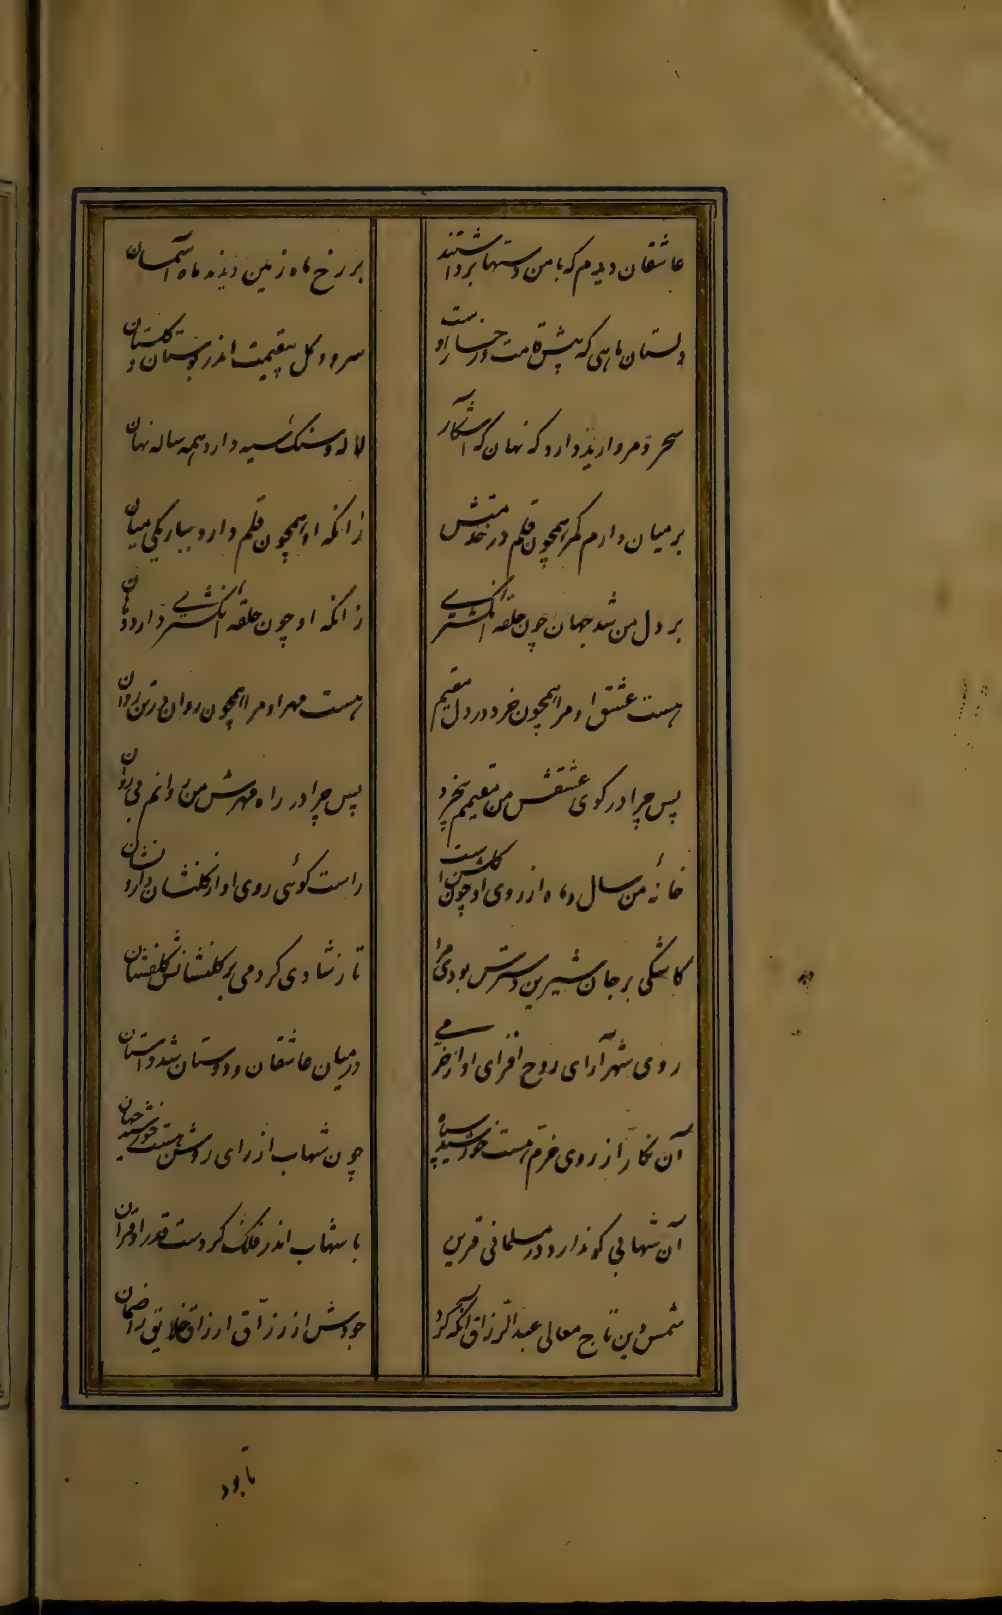 عاشقان دیدم که با من دستها برداشتند
بر رخ ماه زمین دیدند ماه آسمان
دلستان ماهی که پیش قامت و رخسار اوست
سرو و گل بیقیمت اندر بوستان و گلستان
سحر و مروارید دارد که نهان که آشکار
لاله و سنگ سیه دارد همه ساله نهان
بر میان دارم کمر همچون قلم در خدمتش
زانکه او همچون قلم دارد بباریکی میان
بر دل من شد جهان چون حلقه انگشتری
زانکه او چون حلقه انگشتری دارد دهان
هست عشق او مرا همچون خرد در دل مقیم
هست مهر او مرا همچون روان در تن روان
پس چرا در کوی عشقش من مقیمم بیخرد
پس چرا در راه مهرش من روانم بی روان
خانهٔ من سال و ماه از روی او چون گلشن است
راست گوئی روی او از گلفشان دارد نشان
کاشکی بر جان شیرین دسترس بودی مرا
تا ز شادی کردمی بر گلفشانش گلفشان
روی شهر آرای روح افزای او از خرمی
در میان عاشقان و دوستان شد داستان
آن نگار از روی خرم هست خورشید سپاه
چون شهاب از رای روشن هست خورشید جهان
آن شهابی کو ندارد در مسلمانی قرین
با شهاب اندر فلک کردست قدر او قران
شمس دین تاج معالی عبدالرزاق آنکه کرد
جودش از رزاق ارزاق خلایق را ضمان
تا بود